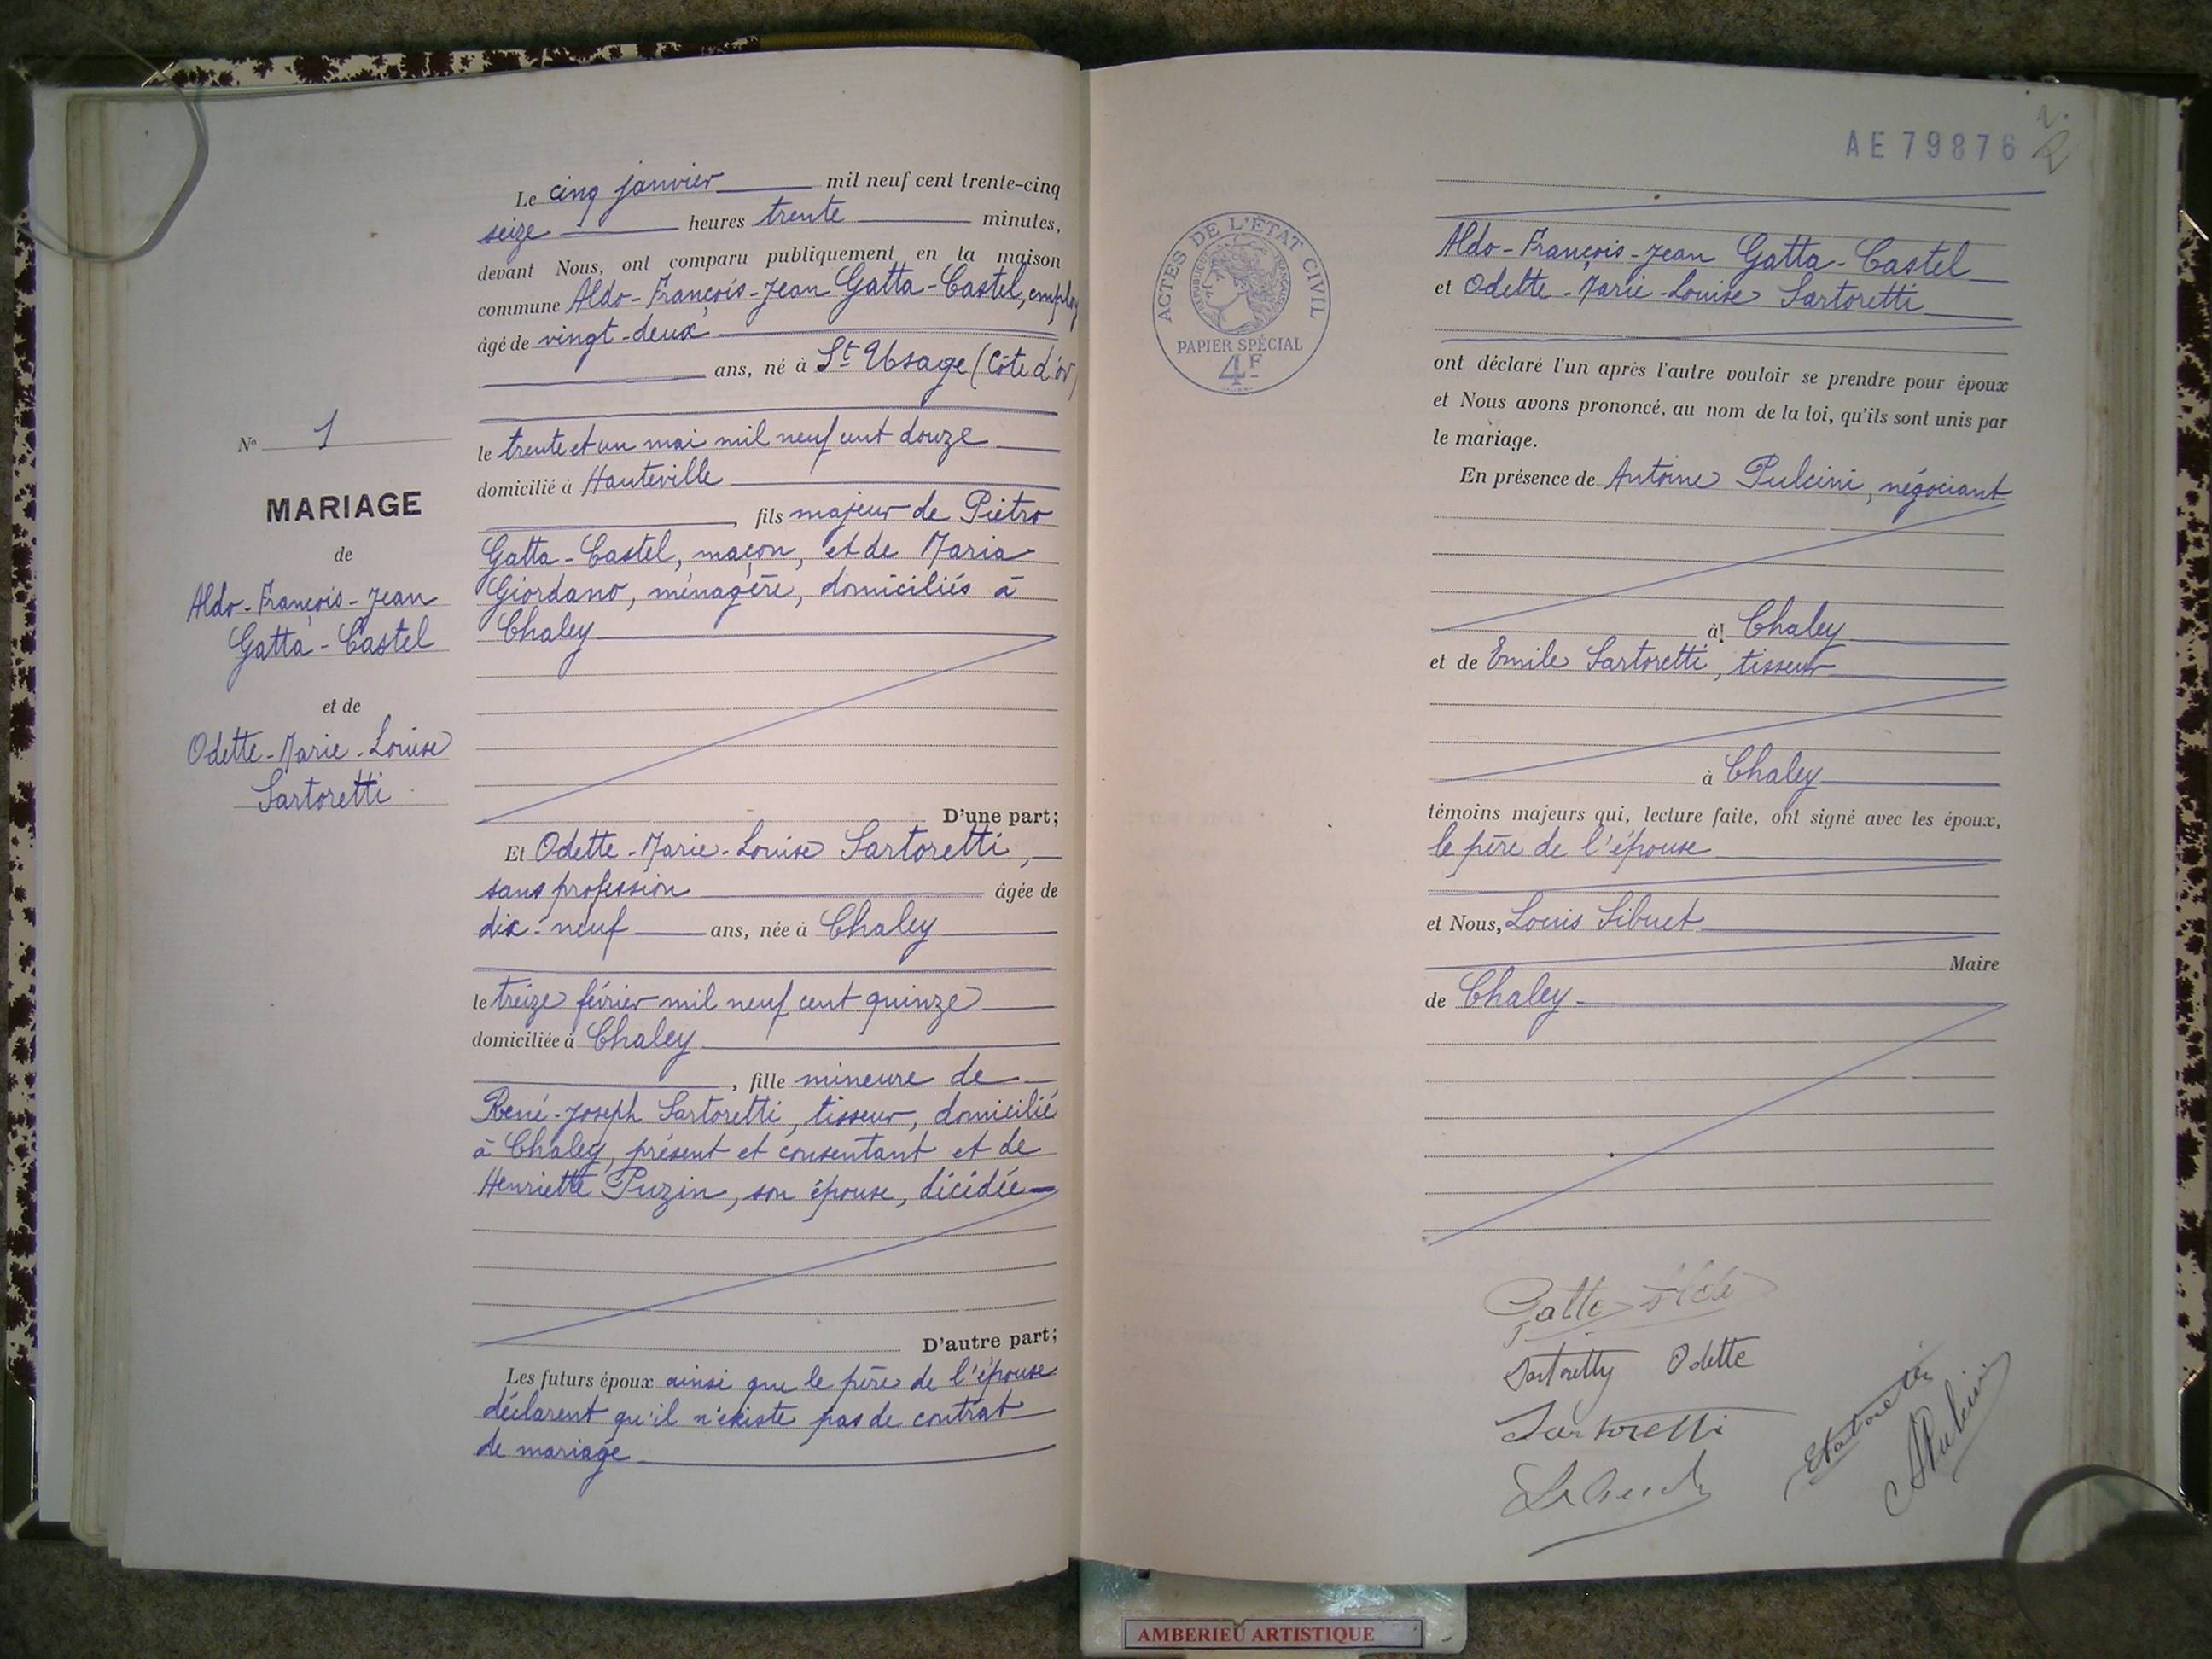 N° 1
MARIAGE
de
Aldo-François-Jean
Gatta-Castel
et de
Odette-Marie-Louise
Sartoretti
Le cinq janvier mil neuf cent trente-cinq
seize heures trente minutes,
devant Nous, ont comparu publiquement en la maison
commune Aldo-François-Jean Gatta-Castel,
âgé de vingt-deux
ans, né à St Usage (Côte d'or)
le trente et un mai mil neuf cent douze
domicilié à Hauteville
, fils majeur de Pietro
Gatta-Castel, maçon, et de Maria
Giordano, ménagère, domiciliés à
Chaley
D'une part;
Et Odette-Marie-Louise Sartoretti,
sans profession âgée de
dix-neuf ans, née à Chaley
le treize février mil neuf cent quinze
domiciliée à Chaley
, fille mineure de
René-Joseph Sartoretti, tisseur, domicilié
à Chaley, présent et consentant et de
Henriette Puzin, son épouse, décédée
D'autre part;
Les futurs époux ainsi que le père de l'épouse
déclarent qu'il n'existe pas de contrat
de mariage
AE79876
ACTES DE L'ETAT CIVIL
REPUBLIQUE FRANÇAISE
PAPIER SPÉCIAL
4F
Aldo-François-Jean Gatta-Castel
et Odette-Marie-Louise Sartoretti
ont déclaré l'un après l'autre vouloir se prendre pour époux
et Nous avons prononcé, au nom de la loi, qu'ils sont unis par
le mariage.
En présence de Antoine Pulcini, négociant
à Chaley
et de Emile Sartoretti, tisseur
à Chaley
témoins majeurs qui, lecture faite, ont signé avec les époux,
le père de l'épouse
et Nous, Louis Sibuet
Maire
de Chaley
Gatta Aldo
Sartoretty Odette
Sartoretti
APulcini
AMBERIEU ARTISTIQUE